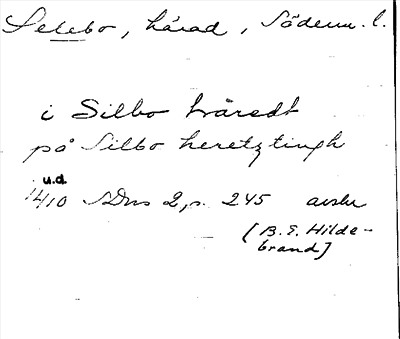 Selebo, härad, Söderm. l.
i Silbo hæredt
på Silbo heretztingh
u.d.
1410 SDns 2, s. 245 avskr
[B. E. Hilde-
brand]